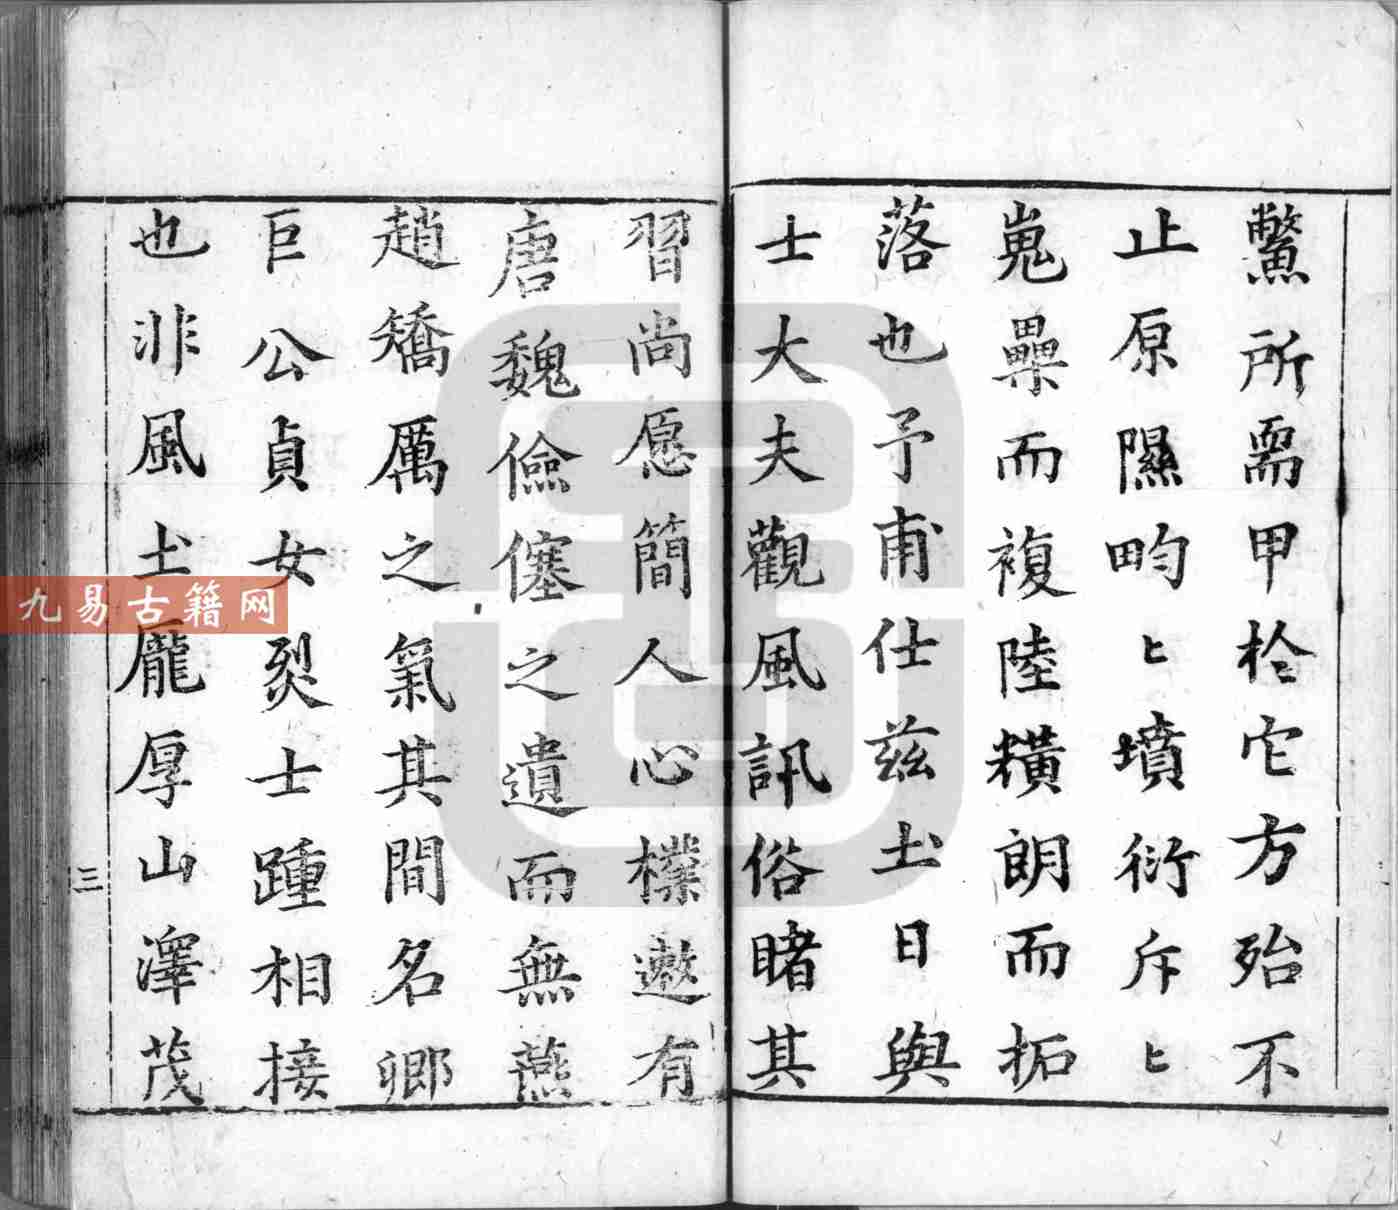 鱉所需甲於它方殆不
止原隰畇〻墳衍斥〻
嵬壘而複陸穔朗而拓
落也予甫仕茲土日與
士大夫觀風訊俗睹其
習尚愿簡人心樸遬有
唐魏儉僿之遺而無燕
趙矯厲之氣其間名卿
巨公貞女烈士踵相接
也非風土龐厚山澤茂
三
九易古籍网